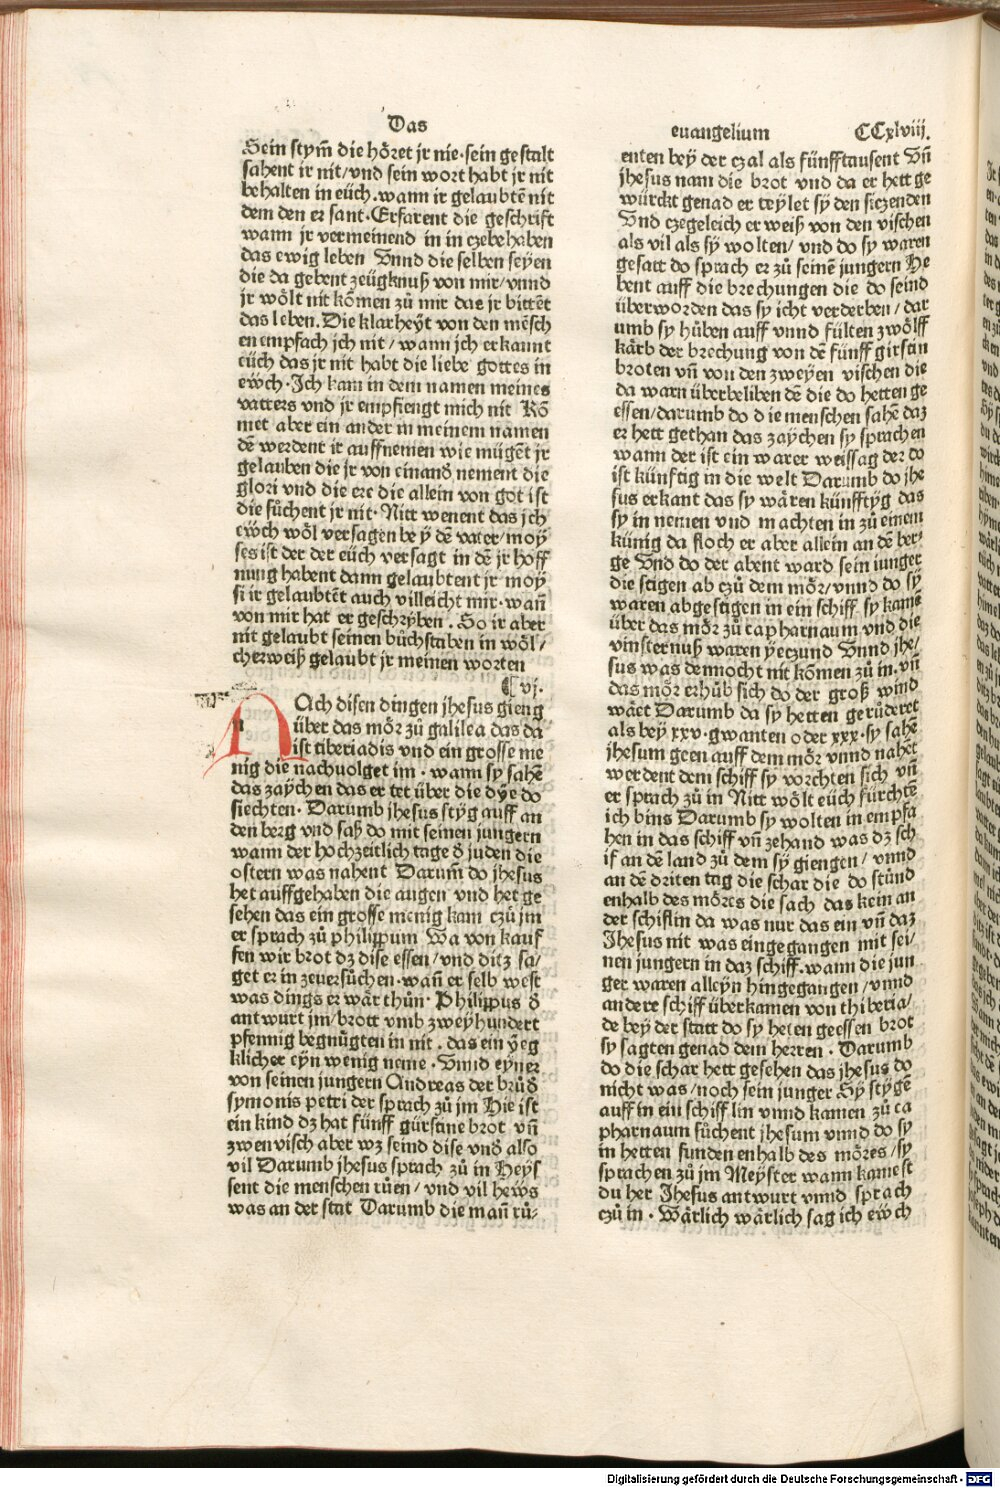 Das
Sein stym̄ die hoͤret jr nie·sein gestalt
sahent ir nit/vnd sein wort habt jr nit
behalten in eüch.wann ir gelaubtē nit
dem den er sant·Erfarent die geschrift
wann jr vermeinend in in czebehaben
das ewig leben Vnnd die selben seyen
die da gebent zeügknuß von mir/vnnd
jr woͤlt nit koͤmen zuͦ mir daz jr bittēt
das leben.Die klarheÿt von den mēsch
en empfach jch nit/wann jch erkannt
eüch das jr nit habt die liebe gottes in
eẅch·Ich kam in dem namen meines
vatters vnd jr empfiengt mich nit Koͤ
met aber ein ander in meinem namen
dē werdent ir auffnemen wie mügēt jr
gelauben die jr von einand᷑ nement die
glori vnd die ere die allein von got ist
die suͦchent jr nit· Nitt wenent das jch
eẅch woͤl versagen beÿ dē vater/moÿ
ses ist der der eüch versagt in dē jr hoff
nung habent dann gelaubtent jr moÿ
si ir gelaubtēt auch villeicht mir·wan̄
von mir hat er geschryben. So ir aber
nit gelaubt seinen buͦchstaben in woͤl/
cherweiß gelaubt jr meinen worten
⸿vj.
NAch disen dingen jhesus gieng
über das moͤr zuͦ galilea das da
ist tiberiadis vnd ein grosse me
nig die nachuolget im·wann sy sahē
das zaÿchen das er tet über die dÿe do
siechten·Darumb jhesus stÿg auff an
den berg vnd saß do mit seinen jungern
wann der hochzeitlich tage d᷑ juden die
ostern was nahent Darum̄ do jhesus
het auffgehaben die augen vnd het ge
sehen das ein grosse menig kam czuͦ jm
er sprach zuͦ philippum Wa von kauf
fen wir brot dz dise essen/vnd ditz sa/
get er in zeuersuͦchen·wan̄ er selb west
was dings er waͤr thuͦn·Philippus d᷑
antwurt jm/brott vmb zweÿhundert
pfennig begnuͤgten in nit.das ein ÿeg
klicher eyn wenig neme·Vnnd eyner
von seinen jungern Andreas der bruͦd᷑
symonis petri der sprach zuͦ jm Hie ist
ein kind dz hat fünff gürstine brot vn̄
zwen visch aber wz seind dise vnd᷑ also
vil Darumb jhesus sprach zuͦ in Heÿs
sent die menschen ruͦen/vnd vil heẅs
was an der stat Darumb die man̄ ruͦ-
euangelium CCxlviij.
enten beÿ der czal als fünfftausent Vn̄
jhesus nam die brot vnd da er hett ge
würckt genad er teÿlet sÿ den siczenden
Vnd czegeleich er weiß von den vischen
als vil als sÿ wolten/vnd do sy waren
gesatt do sprach er zuͦ seinē jungern He
bent auff die brechungen die do seind
überworden das sy icht verderben/dar
umb sy huͦben auff vnnd fülten zwoͤlff
kaͤrb der brechung von dē fünff girstin
broten vn̄ von den zweÿen vischen die
da warn überbeliben dē die do hetten ge
essen/darumb do die menschen sahē daz
er hett gethan das zaÿchen sy sprachen
wann der ist ein warer weissag der do
ist künftig in die welt Darumb do jhe
sus erkant das sy waͤren künfftÿg das
sy in nemen vnd machten in zuͦ einem
künig da floch er aber allein an dē ber/
ge Vnd do der abent ward sein iunger
die stigen ab czuͦ dem moͤr/vnnd do sÿ
waren abgestigen in ein schiff sy kamē
über das moͤr zuͦ capharnaum vnd die
vinsternuß waren ÿeczund Vnnd jhe/
sus was dennocht nit koͤmen zuͦ in.vn̄
das moͤr erhuͦb sich do der groß wind
waͤet Darumb da sy hetten geruͤderet
als bey xxv·gwanten oder xxx·sy sahē
jhesum geen auff dem moͤr vnnd nahet
werdent dem schiff sy vorchten sich vn̄
er sprach zuͦ in Nitt woͤlt eüch fürchtē
ich bins Darumb sy wolten in empfa
hen in das schiff vn̄ zehand was dz sch
if an dē land zuͦ dem sÿ giengen/vnnd
an dē driten tag die schar die do stuͦnd
enhalb des moͤres die sach das kein an
der schiflin da was nur das ein vn̄ daz
Jhesus nit was eingegangen mit sei/
nen jungern in daz schiff.wann die jun
ger waren alleÿn hingegangen/vnnd
andere schiff überkamen von thiberia/
de beÿ der statt do sy heten geessen brot
sy sagten genad dem herren·Darumb
do die schar hett gesehen das jhesus do
nicht was/noch sein junger Sÿ stÿgē
auff in ein schifflin vnnd kamen zuͦ ca
pharnaum suͦchent jhesum vnnd do sy
in hetten funden enhalb des moͤres/sy
sprachen zuͦ jm Meÿster wann kamest
du her Jhesus antwurt vnnd sprach
czuͦ in·Waͤrlich waͤrlich sag ich eẅch
Digitalisierung gefördert durch die Deutsche Forschungsgemeinschaft - DFG